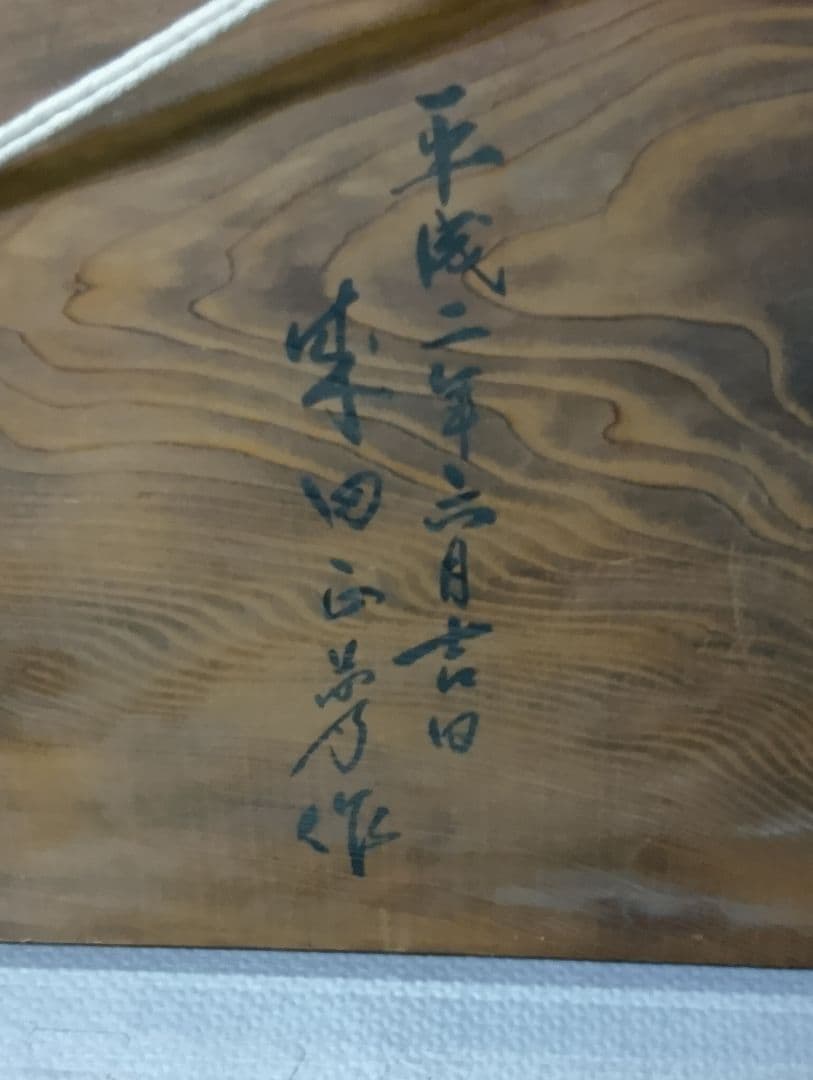 平成二年六月吉日
柴田正芳作